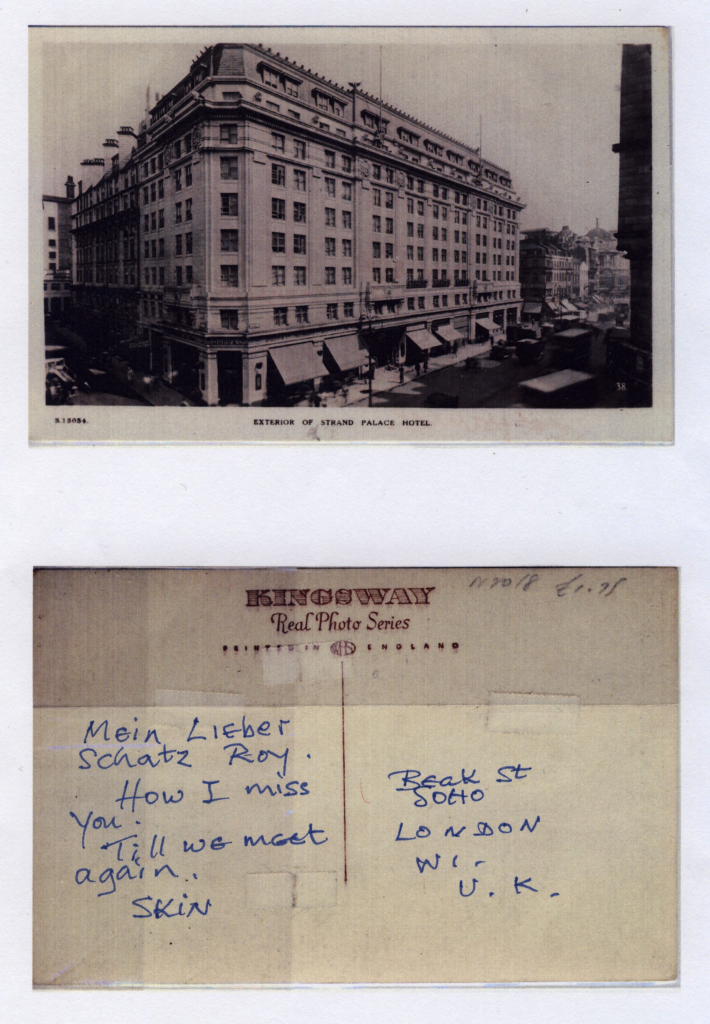 38.
S.13054.
EXTERIOR OF STRAND PALACE HOTEL.
£1.75
KINGSWAY
Real Photo Series
PRINTED IN WHS ENGLAND
Mein Lieber
Schatz Roy.
How I miss
You.
Till we meet
again..
SKIN
Beak St
SOHO
LONDON
W1.
U.K.